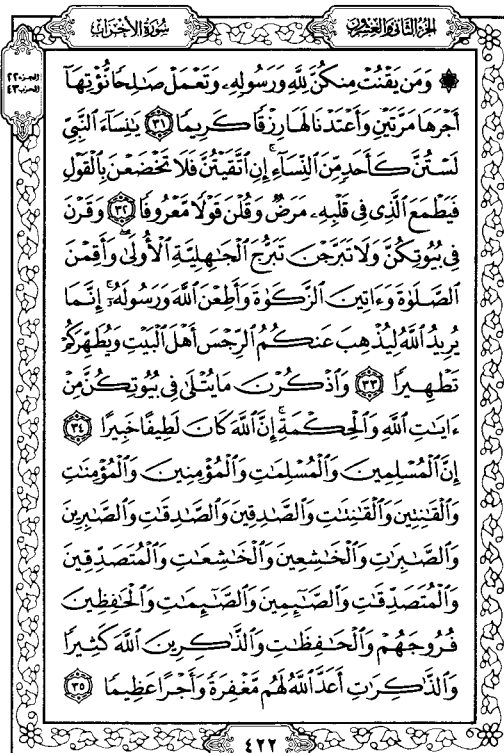 الجزء الثاني والعشرون
سورة الأحزاب
الجزء ٢٢
الحزب ٤٣
۞ وَمَن يَقْنُتْ مِنكُنَّ لِلَّهِ وَرَسُولِهِۦ وَتَعْمَلْ صَٰلِحًا نُّؤْتِهَآ
أَجْرَهَا مَرَّتَيْنِ وَأَعْتَدْنَا لَهَا رِزْقًا كَرِيمًا ٣١ يَٰنِسَآءَ ٱلنَّبِيِّ
لَسْتُنَّ كَأَحَدٍ مِّنَ ٱلنِّسَآءِ إِنِ ٱتَّقَيْتُنَّ فَلَا تَخْضَعْنَ بِٱلْقَوْلِ
فَيَطْمَعَ ٱلَّذِى فِى قَلْبِهِۦ مَرَضٌ وَقُلْنَ قَوْلًا مَّعْرُوفًا ٣٢ وَقَرْنَ
فِى بُيُوتِكُنَّ وَلَا تَبَرَّجْنَ تَبَرُّجَ ٱلْجَٰهِلِيَّةِ ٱلْأُولَىٰ وَأَقِمْنَ
ٱلصَّلَوٰةَ وَءَاتِينَ ٱلزَّكَوٰةَ وَأَطِعْنَ ٱللَّهَ وَرَسُولَهُۥٓ إِنَّمَا
يُرِيدُ ٱللَّهُ لِيُذْهِبَ عَنكُمُ ٱلرِّجْسَ أَهْلَ ٱلْبَيْتِ وَيُطَهِّرَكُمْ
تَطْهِيرًا ٣٣ وَٱذْكُرْنَ مَا يُتْلَىٰ فِى بُيُوتِكُنَّ مِنْ
ءَايَٰتِ ٱللَّهِ وَٱلْحِكْمَةِ إِنَّ ٱللَّهَ كَانَ لَطِيفًا خَبِيرًا ٣٤
إِنَّ ٱلْمُسْلِمِينَ وَٱلْمُسْلِمَٰتِ وَٱلْمُؤْمِنِينَ وَٱلْمُؤْمِنَٰتِ
وَٱلْقَٰنِتِينَ وَٱلْقَٰنِتَٰتِ وَٱلصَّٰدِقِينَ وَٱلصَّٰدِقَٰتِ وَٱلصَّٰبِرِينَ
وَٱلصَّٰبِرَٰتِ وَٱلْخَٰشِعِينَ وَٱلْخَٰشِعَٰتِ وَٱلْمُتَصَدِّقِينَ
وَٱلْمُتَصَدِّقَٰتِ وَٱلصَّٰٓئِمِينَ وَٱلصَّٰٓئِمَٰتِ وَٱلْحَٰفِظِينَ
فُرُوجَهُمْ وَٱلْحَٰفِظَٰتِ وَٱلذَّٰكِرِينَ ٱللَّهَ كَثِيرًا
وَٱلذَّٰكِرَٰتِ أَعَدَّ ٱللَّهُ لَهُم مَّغْفِرَةً وَأَجْرًا عَظِيمًا ٣٥
٤٢٢